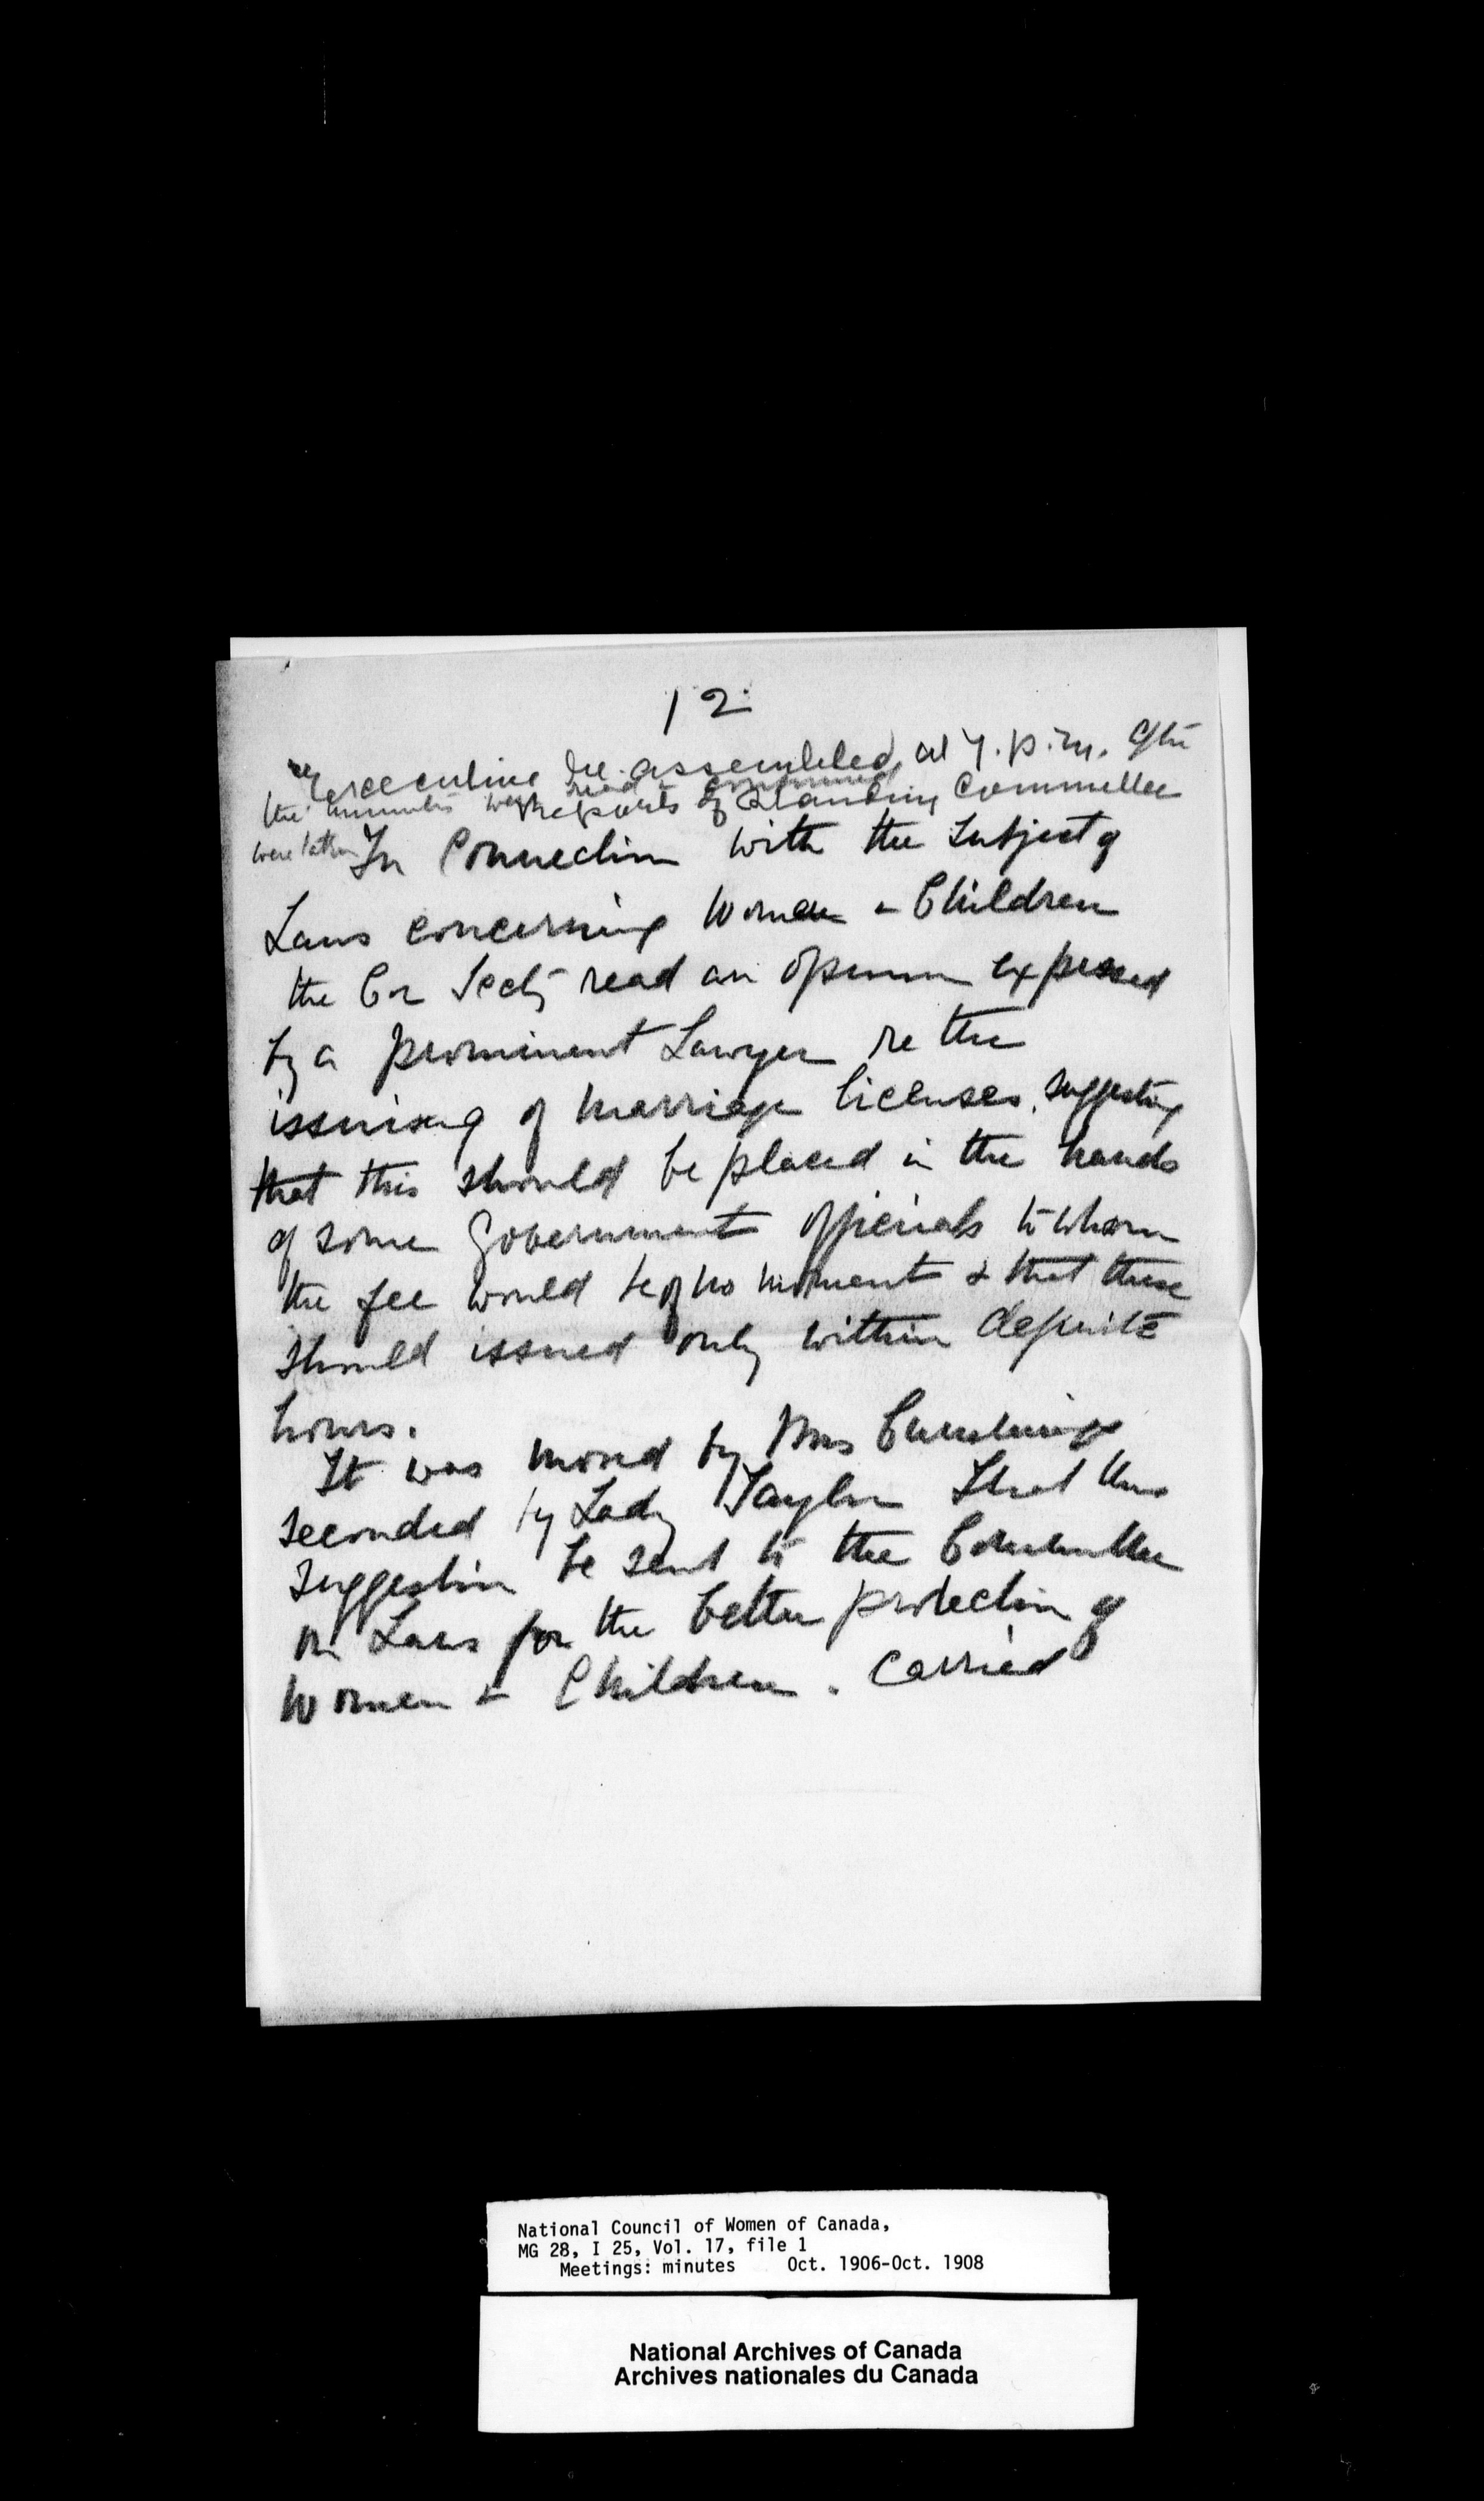 12
The Executive re-assembled, at 7.p.m. After
the minutes were read & confirmed
reports of Standing Committee
were taken
In Connection with the subject of
Laws concerning Women & Children
the Cor Secty read an opinion expressed
by a prominent Lawyer re the
issuing of Marriage licenses, suggesting
that this should be placed in the hands
of some Government officials to whom
the fee would be of no moment & that these
should issued only within definite
hours.
It was moved by Mrs Cummings
seconded by Lady Taylor That this
suggestion be sent to the Committee
on Laws for the better protection of
Women & Children. Carried
National Council of Women of Canada,
MG 28, I 25, Vol. 17, file 1
Meetings: minutes Oct. 1906-Oct. 1908
National Archives of Canada
Archives nationales du Canada